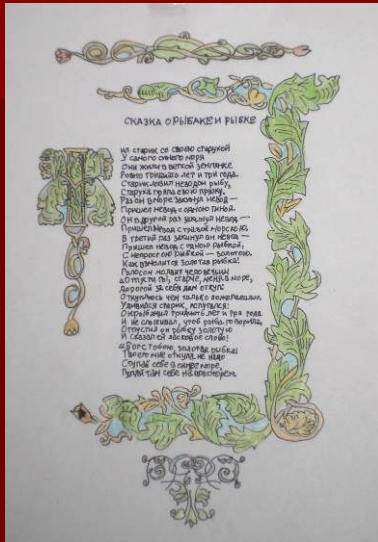 СКАЗКА О РЫБАКЕ И РЫБКЕ
ил старик со своею старухой
У самого синего моря
Они жили в ветхой землянке
Ровно тридцать лет и три года.
Старик ловил неводом рыбу,
Старуха пряла свою пряжу.
Раз он в море закинул невод —
Пришел невод с одною тиной.
Он в другой раз закинул невод —
Пришел невод с травой морскою,
В третий раз закинул он невод —
Пришел невод с одною рыбкой,
С непростою рыбкой — золотою.
Как взмолится золотая рыбка!
Голосом молвит человечьим
«Отпусти ты, старче, меня в море,
Дорогой за себя дам откуп:
Откуплюсь чем только пожелаешь».
Удивился старик, испугался:
Он рыбачил тридцать лет и три года
И не слыхивал, чтоб рыба говорила.
Отпустил он рыбку золотую
И сказал ей ласковое слово:
«Бог с тобою, золотая рыбка!
Твоего мне откупа не надо
Ступай себе в синее море,
Гуляй там себе на просторе».